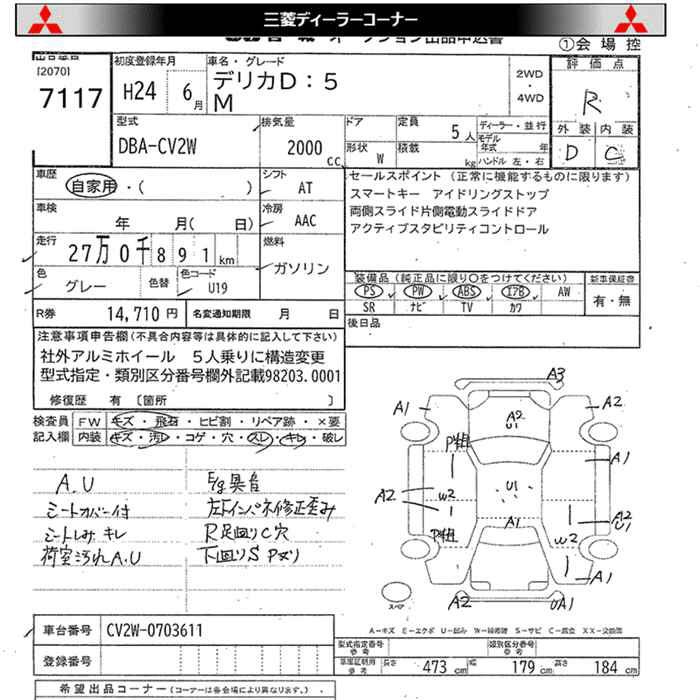 三菱ディーラーコーナー
オークション出品申込書
①会場控
出品番号
[2070]
7117
初度登録年月
H24 6月
車名・グレード
デリカD：5
M
2WD
・
4WD
評価点
R
外装 内装
D C
型式
DBA-CV2W
排気量
2000 cc
ドア
形状 W
定員 5人
積載 kg
ディーラー・並行
モデル
年式 年
ハンドル 左・右
車歴
自家用・( )
シフト
AT
車検
年 月( 日)
冷房
AAC
走行
27万0千891km
燃料
ガソリン
色
グレー
色替
色コード
U19
R券 14,710円
名変通知期限 月 日
セールスポイント (正常に機能するものに限ります)
スマートキー アイドリングストップ
両側スライド片側電動スライドドア
アクティブスタビリティコントロール
装備品 (純正品に限り○をつけてください)
PS PW ABS エアB AW
SR ナビ TV カワ
新車保証書
有・無
後日品
注意事項申告欄(不具合内容等は具体的に記入して下さい)
社外アルミホイール 5人乗りに構造変更
型式指定・類別区分番号欄外記載98203.0001
修復歴 有 〔箇所 〕
検査員 FW キズ・飛石・ヒビ割・リペア跡・×要
記入欄 内装 キズ・汚レ・コゲ・穴・スレ・キレ・破レ
A.U
シートカバー付
シートしみ キレ
荷室汚れA.U
E/g異音
左下インパネ修正歪み
R足回りC穴
下回りS Pヌリ
A3
A1
A2
A2
U1
P粗
A1
U1
A2
W2
A2
U1
A1
P粗
W2
A1
A2
UA1
スペア
A－キズ E－エクボ U－凹み W－補修跡 S－サビ C－腐食 XX－交換歴
車台番号 CV2W-0703611
登録番号
型式指定番号
参考
類別区分番号
参考
車庫証明用
参考
長さ 473 cm 幅 179 cm 高さ 184 cm
希望出品コーナー (コーナーは各会場により異なります。)